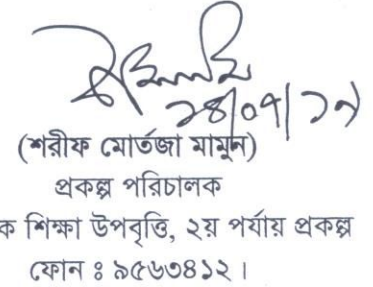 ২৪/০৭/১৭
(শরীফ মোর্তজা মামুন)
প্রকল্প পরিচালক
ক শিক্ষা উপবৃত্তি, ২য় পর্যায় প্রকল্প
ফোন ঃ ৯৫৬৩৪১২ ।